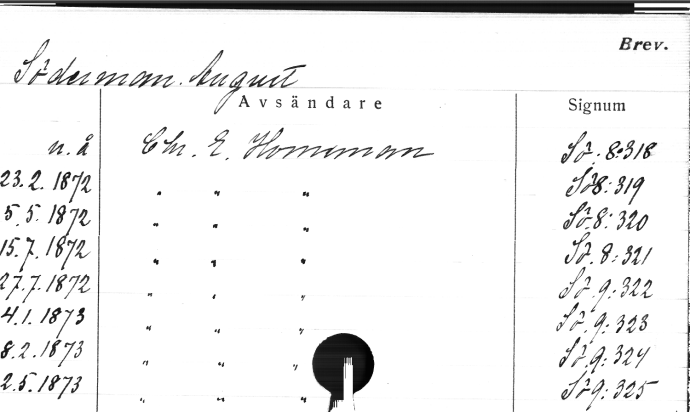 Brev.
Söderman. August
Avsändare Signum
n. å Chr. E. Horneman Sö. 8:318
23. 2. 1872 " " " Sö 8: 319
5. 5. 1872 " " " Sö. 8: 320
15. 7. 1872 " " " Sö. 8: 321
27. 7. 1872 " " " Sö 9: 322
4. 1. 1873 " " " Sö. 9: 323
8. 2. 1873 " " " Sö. 9: 324
2. 5. 1873 " " " Sö 9: 325